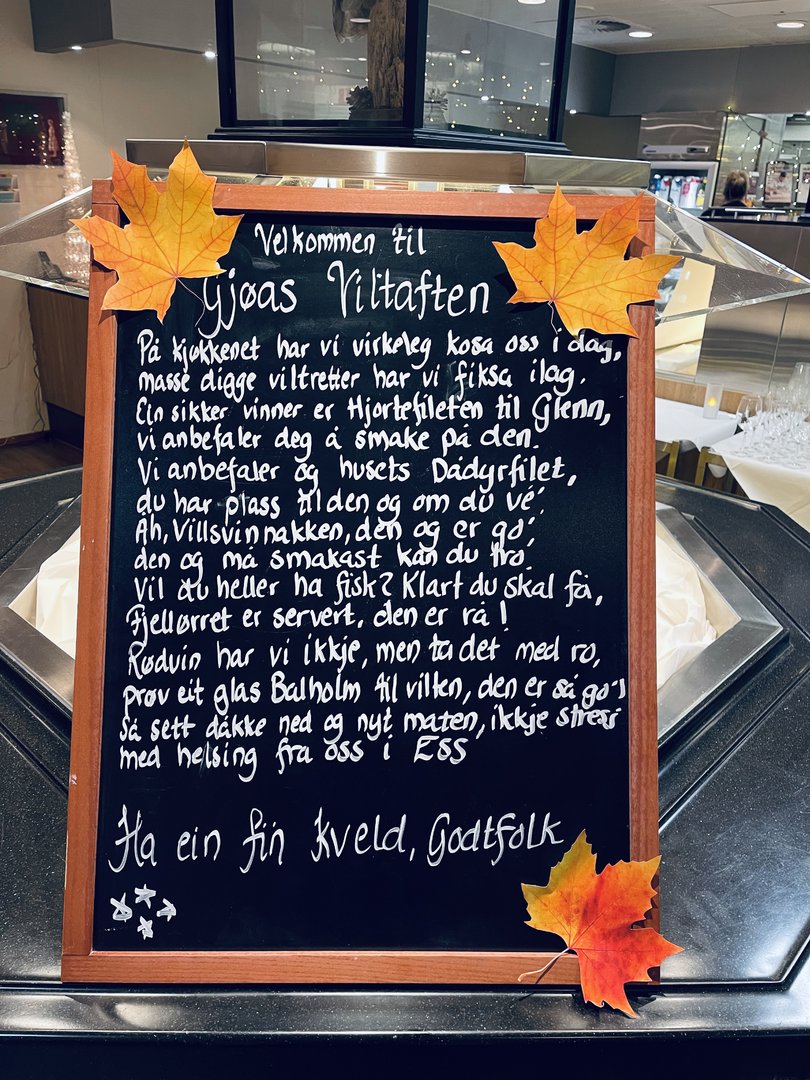 Velkommen til
Gjøas Viltaften
På kjøkkenet har vi virkeleg kosa oss i dag,
masse digge viltretter har vi fiksa ilag.
Ein sikker vinner er Hjortefileten til Glenn,
vi anbefaler deg å smake på den.
Vi anbefaler og husets Dådyrfilet,
du har plass til den og om du vé'.
Åh, Villsvinnakken, den og er go',
den og må smakast kan du tro.
Vil du heller ha fisk? Klart du skal få,
Fjellørret er servert, den er rå!
Rødvin har vi ikkje, men ta det med ro,
prøv eit glas Balholm til vilten, den er så go'!
Så sett dåkke ned og nyt maten, ikkje stress
med helsing fra oss i Ess
Ha ein fin kveld, Godtfolk